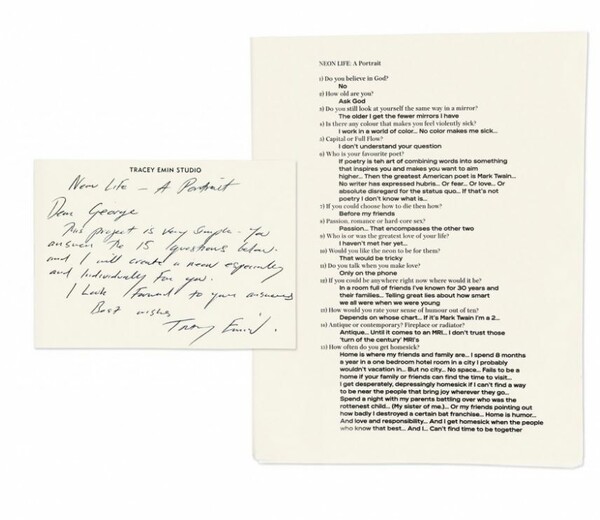 TRACEY EMIN STUDIO
Neon Life – A Portrait
Dear George
This project is very simple. You
answer the 15 questions below.
and I will create a neon especially
and Individually for you.
I Look Forward to your answers
Best wishes
Tracey Emin.
NEON LIFE: A Portrait
1) Do you believe in God?
No
2) How old are you?
Ask God
3) Do you still look at yourself the same way in a mirror?
The older I get the fewer mirrors I have
4) Is there any colour that makes you feel violently sick?
I work in a world of color... No color makes me sick...
5) Capital or Full Flow?
I don't understand your question
6) Who is your favourite poet?
If poetry is teh art of combining words into something
that inspires you and makes you want to aim
higher... Then the greatest American poet is Mark Twain...
No writer has expressed hubris... Or fear... Or love... Or
absolute disregard for the status quo... If that's not
poetry I don't know what is...
7) If you could choose how to die then how?
Before my friends
8) Passion, romance or hard core sex?
Passion... That encompasses the other two
9) Who is or was the greatest love of your life?
I haven't met her yet...
10) Would you like the neon to be for them?
That would be tricky
11) Do you talk when you make love?
Only on the phone
12) If you could be anywhere right now where would it be?
In a room full of friends I've known for 30 years and
their families... Telling great lies about how smart
we all were when we were young
13) How would you rate your sense of humour out of ten?
Depends on whose chart... If it's Mark Twain I'm a 2...
14) Antique or contemporary? Fireplace or radiator?
Antique... Until it comes to an MRI... I don't trust those
'turn of the century' MRI's
15) How often do you get homesick?
Home is where my friends and family are... I spend 8 months
a year in a one bedroom hotel room in a city I probably
wouldn't vacation in... But no city... No space... Fails to be a
home if your family or friends can find the time to visit...
I get desperately, depressingly homesick if I can't find a way
to be near the people that bring joy wherever they go...
Spend a night with my parents battling over who was the
rottenest child... (My sister of me.)... Or my friends pointing out
how badly I destroyed a certain bat franchise... Home is humor...
And love and responsibility... And I get homesick when the people
who know that best... And I... Can't find time to be together